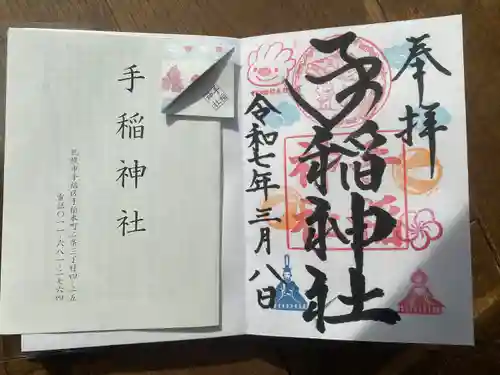 奉拝
手稲神社
令和七年三月八日
手稲神社
札幌市手稲区手稲本町二条三丁目四－二五
電話〇一一－六八一－二七六四